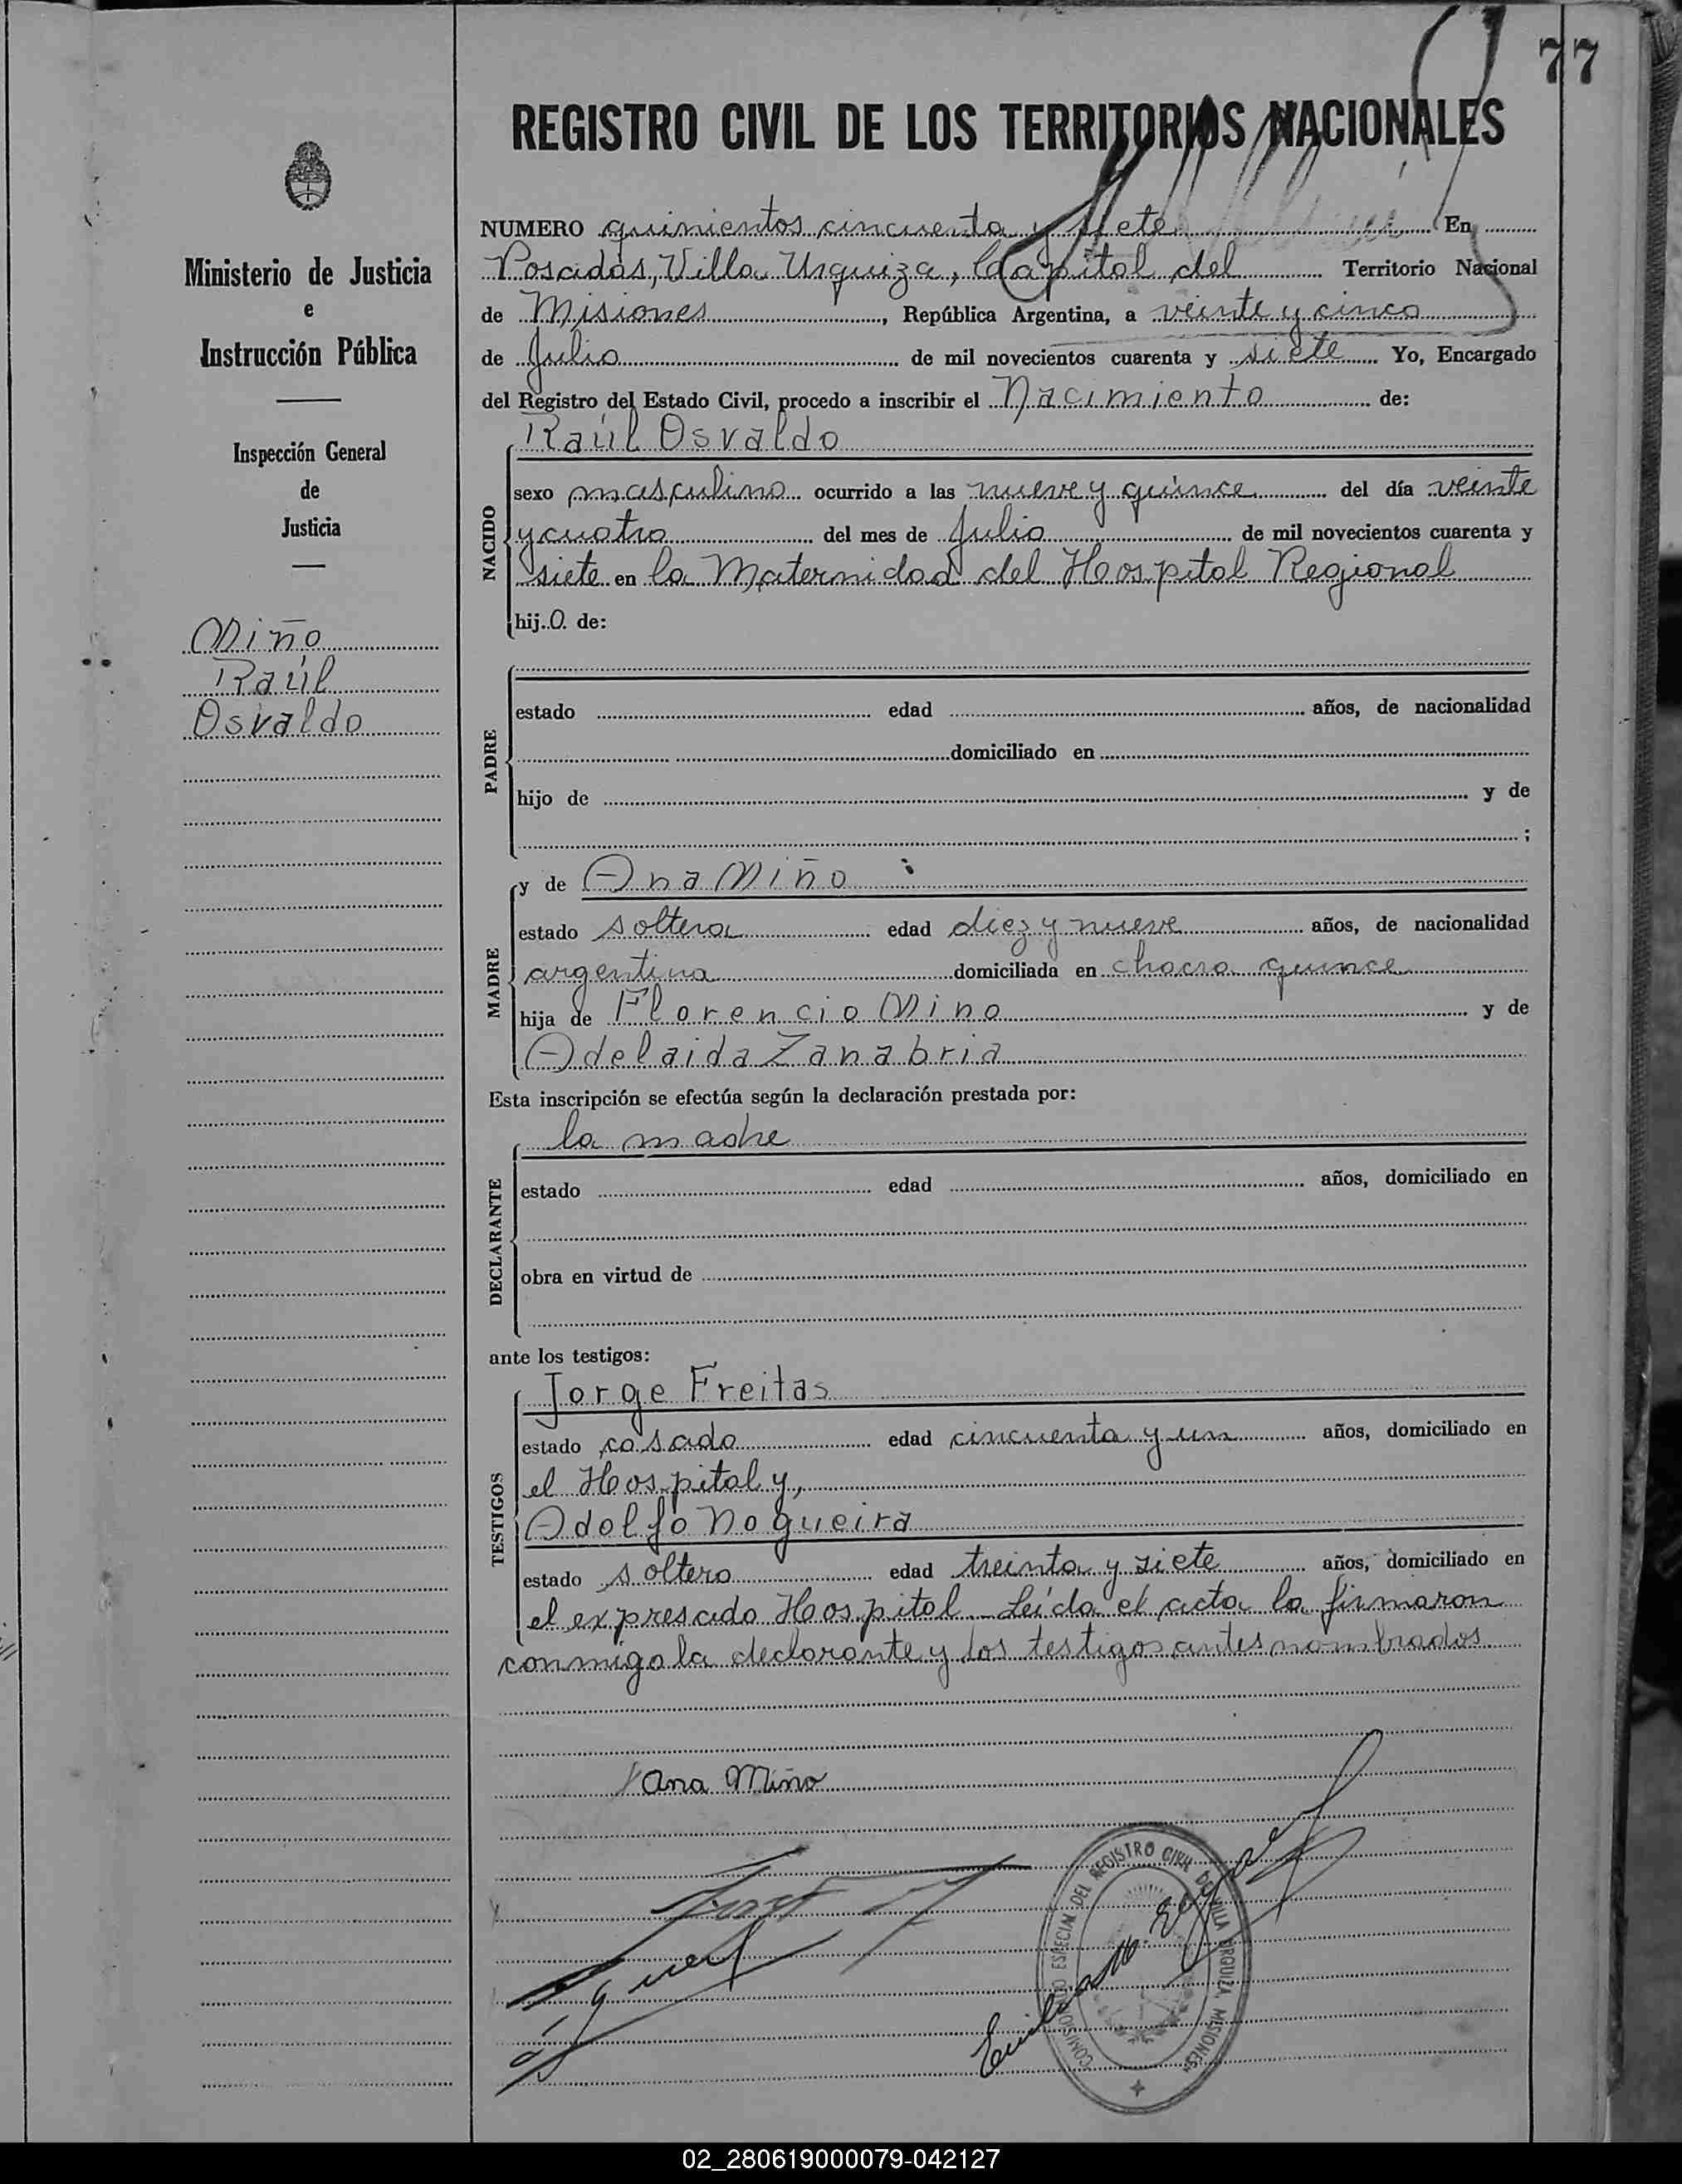 77
REGISTRO CIVIL DE LOS TERRITORIOS NACIONALES
Ministerio de Justicia
e
Instrucción Pública
Inspección General
de
Justicia
Miño
Raúl
Osvaldo
NUMERO quinientos cincuenta y siete En
Posadas, Villa Urquiza, Capital del Territorio Nacional
de Misiones, República Argentina, a veinte y cinco
de Julio de mil novecientos cuarenta y siete Yo, Encargado
del Registro del Estado Civil, procedo a inscribir el Nacimiento de:
Raúl Osvaldo
NACIDO
sexo masculino ocurrido a las nueve y quince del día veinte
y cuatro del mes de Julio de mil novecientos cuarenta y
siete en la Maternidad del Hospital Regional
hijo de:
PADRE
estado edad años, de nacionalidad
domiciliado en
hijo de y de
;
MADRE
y de Ana Miño
estado soltera edad diez y nueve años, de nacionalidad
argentina domiciliada en chacra quince
hija de Florencio Mino y de
Adelaida Zanabria
Esta inscripción se efectúa según la declaración prestada por:
la madre
DECLARANTE
estado edad años, domiciliado en
obra en virtud de
ante los testigos:
Jorge Freitas
TESTIGOS
estado casado edad cincuenta y un años, domiciliado en
el Hospital y,
Adolfo Nogueira
estado soltero edad treinta y siete años, domiciliado en
el expresado Hospital. Leída el acta la firmaron
conmigo la declarante y los testigos antes nombrados
Ana Miño
COMISIONADO ESPECIAL DEL REGISTRO CIVIL DE VILLA URQUIZA MISIONES
02_280619000079-042127